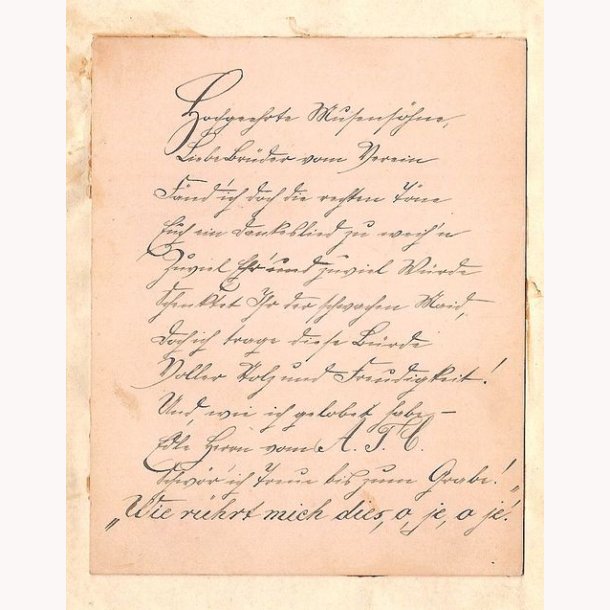 Hochgeehrte Musensöhne,
Liebe Brüder vom Verein
Fänd' ich doch die rechten Töne
Euch ein Dankeslied zu weih'n
Zuviel Ehr' und zuviel Würde
Schenktet Ihr der schwachen Maid,
Doch ich trage diese Bürde
Voller Stolz und Freudigkeit!
Und, wie ich gelobet habe –
Edle Herrn vom A. T. C.
Schwör' ich Treue bis zum Grabe!
„Wie rührt mich dies, o, je, o je!"